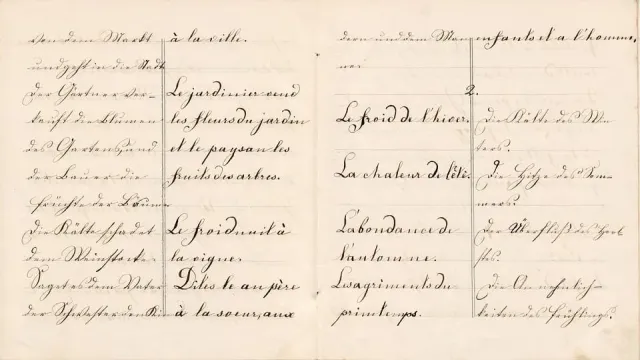 von dem Markt
und geht in die Stadt
Der Gärtner ver-
kauft die Blumen
des Gartens, und
der Bauer die
früchte der Bäume
Die Kälte schadet
dem Weinstocke.
Saget es dem Vater
der Schwester den Kin
à la ville.
Le jardinier vend
les fleurs du jardin
et le paysan les
fruits des artres.
Le froid nuit à
la vigne.
Dites le au père
à la soeur, aux
dern und dem Man
ne.
enfants et a l'homme.
2.
Le froid de l'hiver.
La chaleur de l'été.
L'abondance de
l'automne.
Les agriments du
printemps.
Die Kälte des Win
ters.
Die Hitze des Som-
mers.
Der Überfluß des Herb
stes.
Die Annehmlich-
keiten des Frühlings.